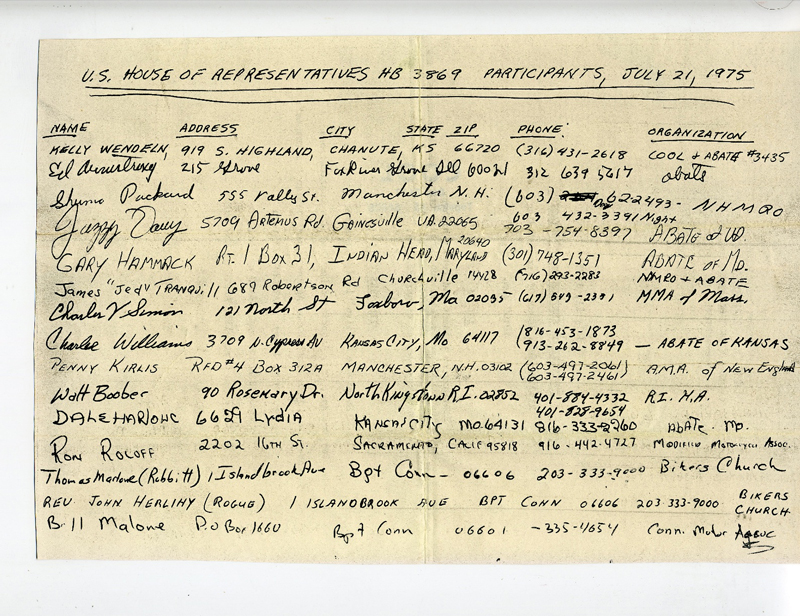 U.S. HOUSE OF REPRESENTATIVES HB 3869 PARTICIPANTS, JULY 21, 1975
NAME ADDRESS CITY STATE ZIP PHONE: ORGANIZATION
KELLY WENDELN, 919 S. HIGHLAND, CHANUTE, KS 66720 (316) 431-2618 COOL & ABATE #3435
Ed Armstrong 215 Grove Fox River Grove Ill 60021 312 639 5617 abate
Packard 555 Valley St. Manchester N.H. (603) 622-2493- NHMRO
603 432-3391 Night
Jazzy Davy 5709 Artemus Rd. Gainesville VA. 22065 703-754-8397 ABATE of VA.
GARY HAMMACK RT. 1 BOX 31, INDIAN HEAD, MARYLAND 20640 (301) 748-1351 ABATE of MD.
James "Jed" TRANQUILL 689 Robertson Rd Churchville 14428 (716) 293-2283 NMRO + ABATE
Charles V Simon 121 North St Foxboro, Ma 02035 (617) 543-2391 MMA of Mass.
Charlie Williams 3709 N. Cypress AV KANSAS CITY, Mo 64117 (816-453-1873
(913-262-8849 — ABATE OF KANSAS
PENNY KIRLIS RFD #4 BOX 312A MANCHESTER, N.H. 03102 (603-497-2061)
(603-497-2461) A.M.A. of New England
Walt Boober 90 Rosemary Dr. North Kingstown R.I. 02852 401-884-4332 R.I. M.A.
401-828-9654
DALE 6629 Lydia KANSAS CITY MO. 64131 816-333-2260 Abate. Mo.
RON ROLOFF 2202 16TH St. SACRAMENTO, CALIF 95818 916-442-4727 MODIFIED MOTORCYCLE ASSOC.
Thomas Marlowe (Rabbitt) 1 Islandbrook Ave Bpt Conn - 06606 203-333-9000 Bikers Church
REV. JOHN HERLIHY (ROGUE) 1 ISLANDBROOK AVE BPT CONN 06606 203-333-9000 BIKERS
CHURCH.
Bill Malone P.O Box 1660 Bpt Conn 06601 -335-4654 Conn. Motor